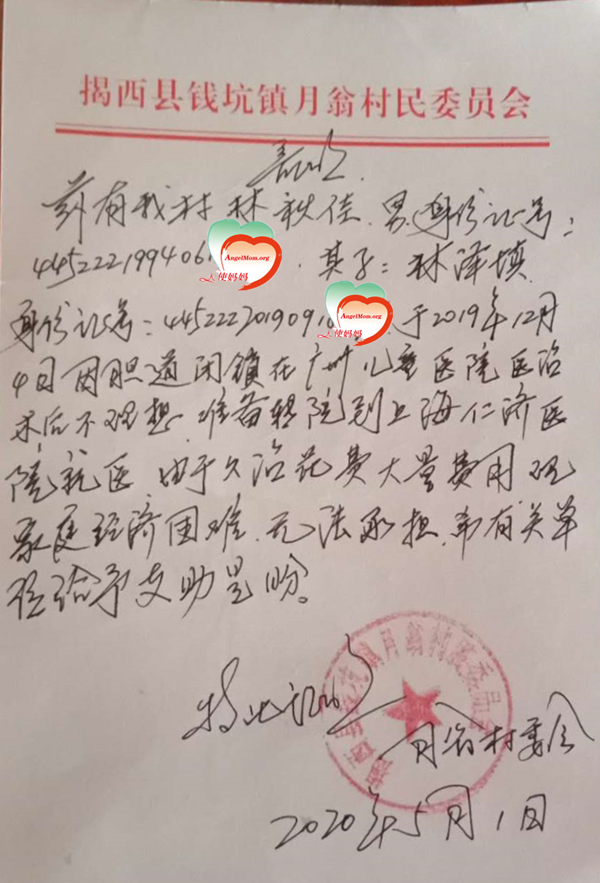 揭西县钱坑镇月翁村民委员会
证明
兹有我村林秋佳.男.身份证号:
445222199406
AngelMom.org
天使妈妈
.其子:林泽填.
身份证号:44522220190910
AngelMom.org
天使妈妈
于2019年12月
4日因胆道闭锁在广州儿童医院医治
术后不理想.准备转院到上海仁济医
院就医.由于久治花费大量费用现
家庭经济困难.无法承担.希有关单
位给予支助是盼。
特此证明
月翁村委会
揭西县钱坑镇月翁村民委员会
2020年5月1日